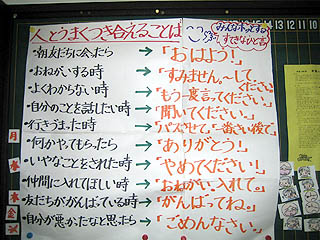 人とうまくつき合えることば
みんながホッとする
すてきなひと言
14 13 12 11 10
・朝友だちに会ったら → 「おはよう!」
・おねがいする時 → 「すみません、~してください。」
・よくわからない時 → 「もう一度言ってください。」
・自分のことを話したい時 → 「聞いてください。」
・行きづまった時 → 「パスさせて。一番さい後で。」
・何かやってもらったら → 「ありがとう!」
・いやなことをされた時 → 「やめてください!」
・仲間に入れてほしい時 → 「おねがい、入れて。」
・友だちががんばっている時 → 「がんばってね。」
・自分が悪かったなと思ったら → 「ごめんなさい。」
月
水
金